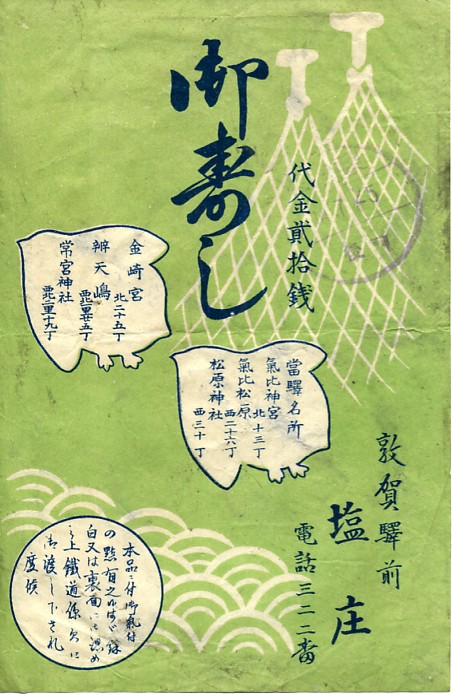 御寿し
代金貳拾銭
當驛名所
氣比神宮 北十三丁
氣比松原 西二十六丁
松原神社 西三十丁
金崎宮 北二十五丁
辨天嶋
常宮神社
敦賀驛前
塩庄
電話三二二番
本品ニ付御気付
の點有之候はゞ餘
白又は裏面に御認め
之上鐵道係員に
御渡し下され
度候